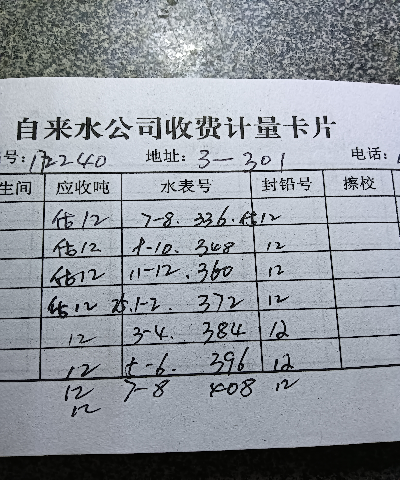 自来水公司收费计量卡片
号:12240 地址:3-301 电话:
生间 应收吨 水表号 封铅号 擦校
估12 7-8. 336.估12
估12 9-10. 348 12
估12 11-12. 360 12
估12 25.1-2. 372 12
12 3-4. 384 12
12 5-6. 396 12
12 7-8 408 12
12